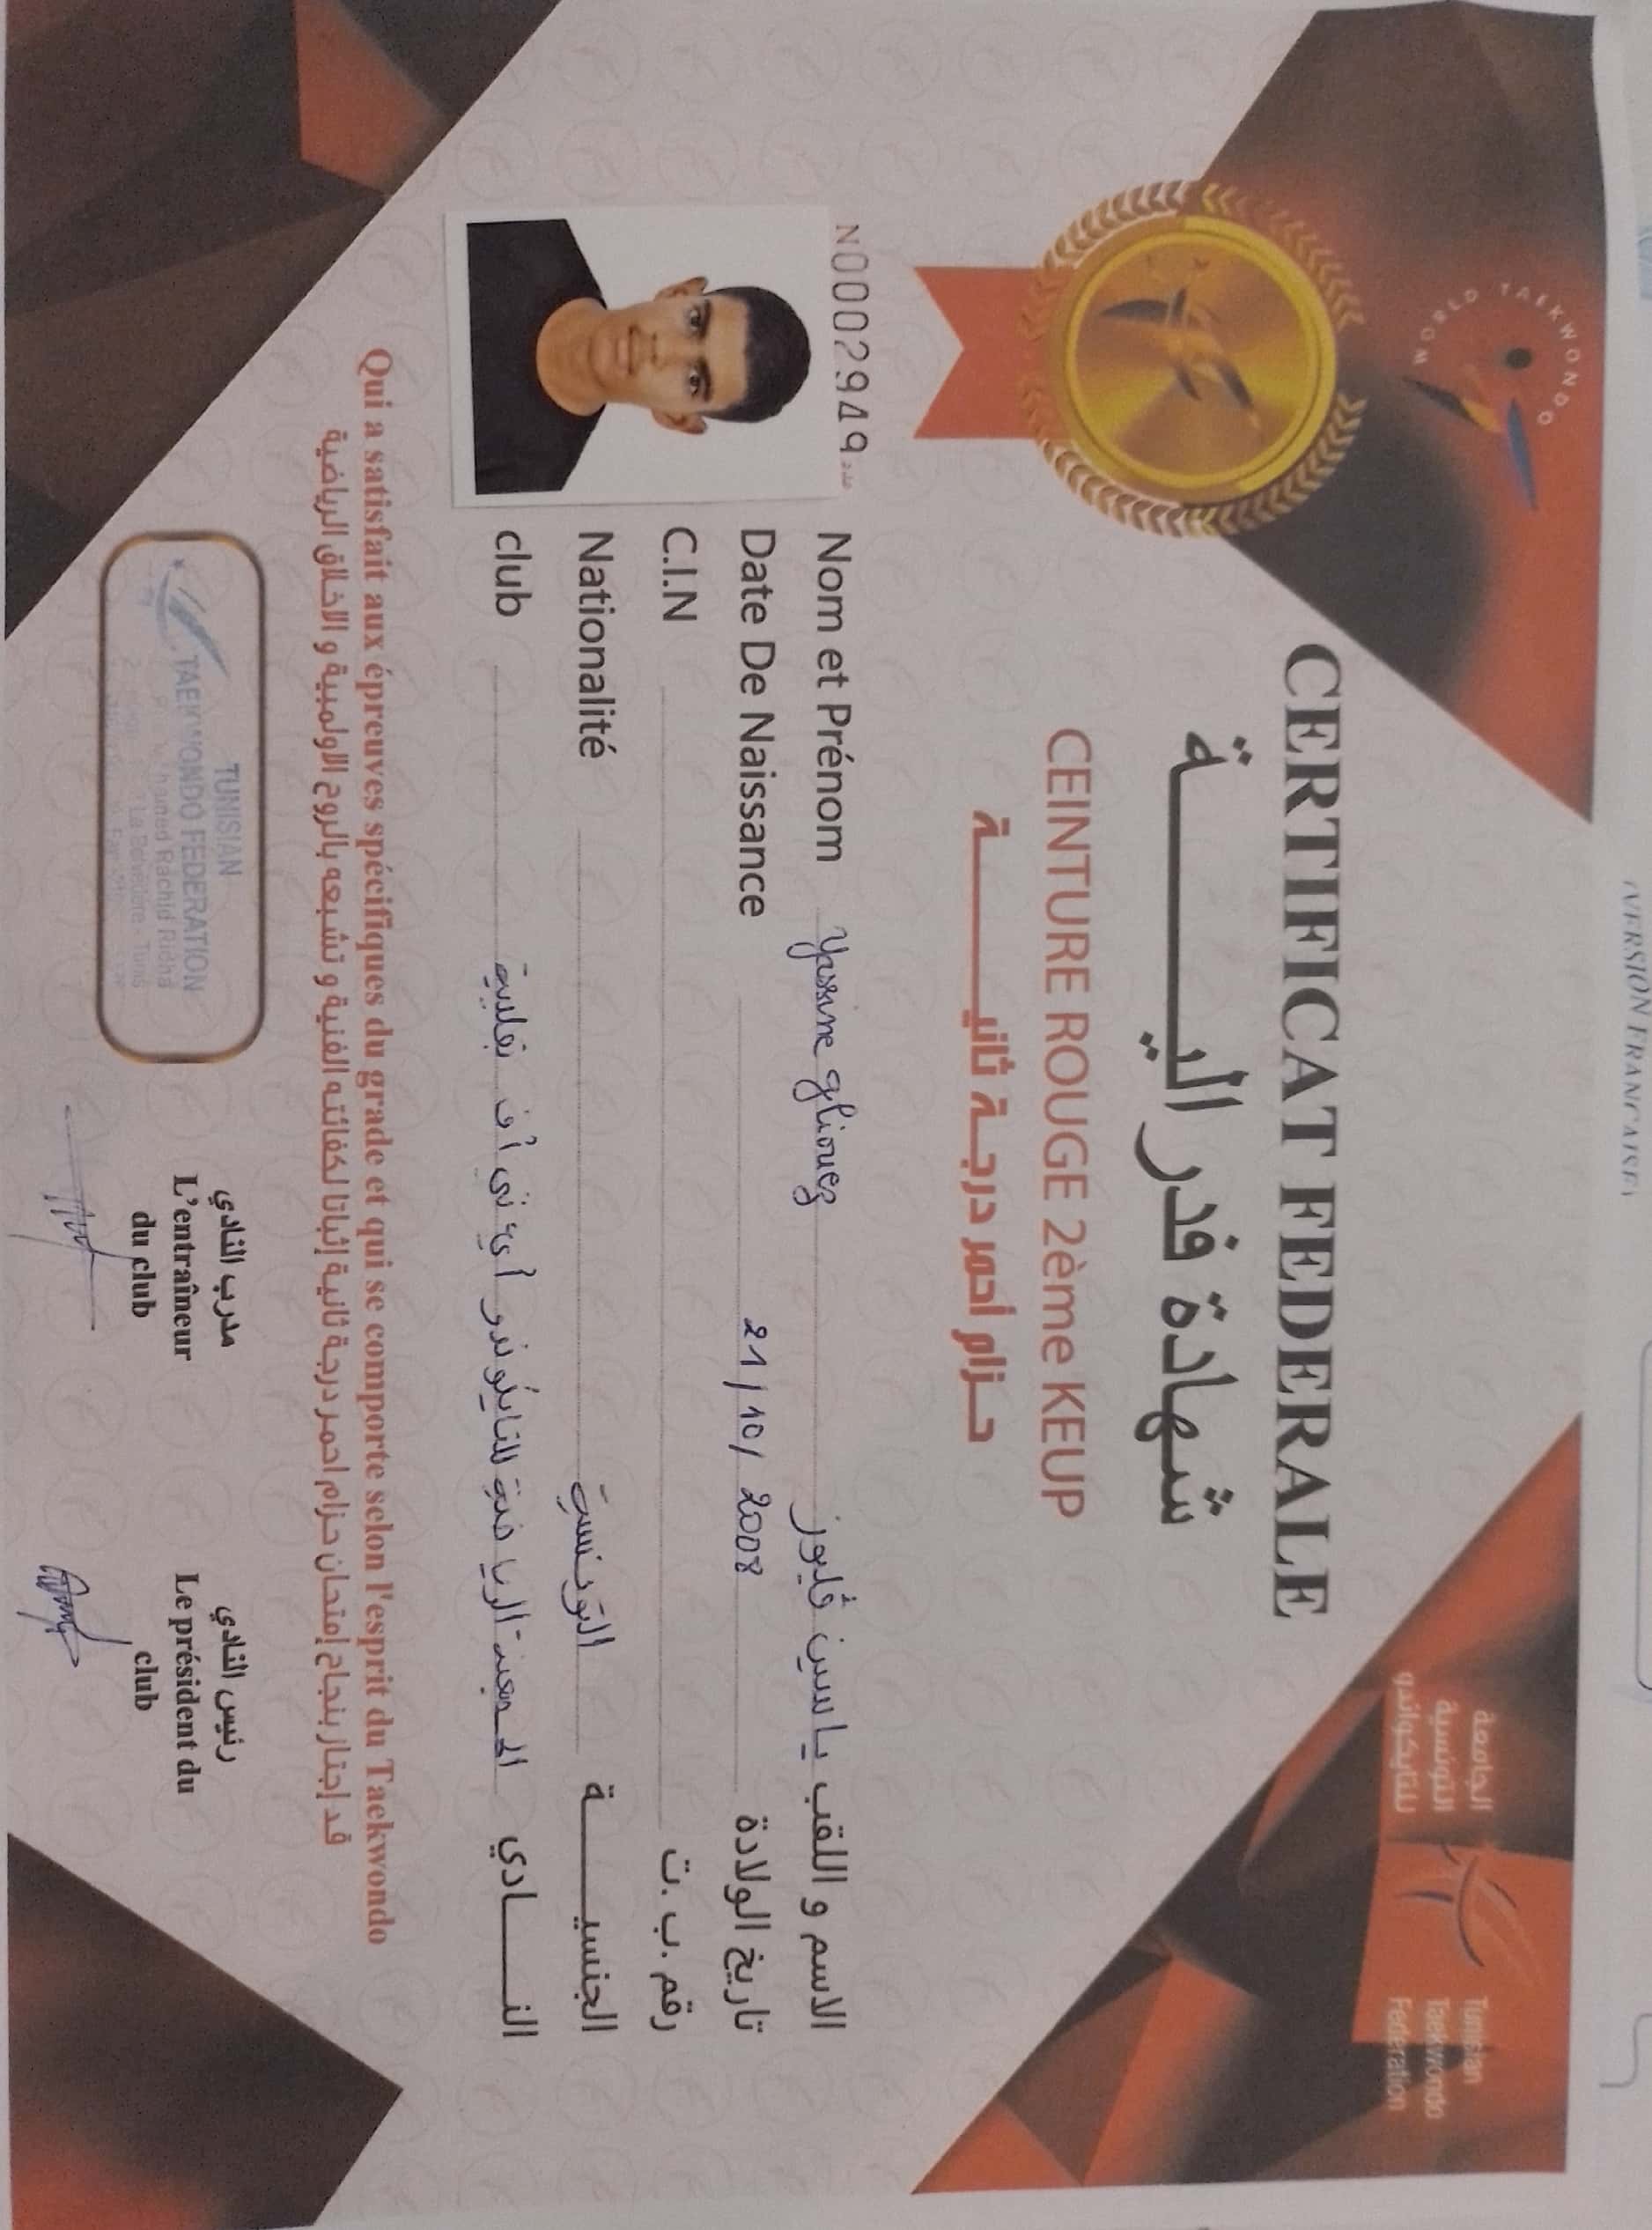 (VERSION FRANCAISE)
WORLD TAEKWONDO
الجامعة
التونسية
للتايكواندو
Tunisian
Taekwondo
Federation
CERTIFICAT FEDERALE
شهادة فدراليــــــة
CEINTURE ROUGE 2ème KEUP
حـزام أحمر درجـة ثانيــــــة
N0002949 عدد
Nom et Prénom Yassine gliouez ياسين ڤليوز الاسم و اللقب
Date De Naissance 21/10/2008 تاريخ الولادة
C.I.N رقم .ب .ت
Nationalité التونسية الجنسيــــــة
club الجمعية الرياضية للتايكوندو أي تي أف بقليبية النــــادي
Qui a satisfait aux épreuves spécifiques du grade et qui se comporte selon l'esprit du Taekwondo
قد إجتاز بنجاح إمتحان حزام احمر درجة ثانية إثباتا لكفائته الفنية و تشبعه بالروح الاولمبية و الاخلاق الرياضية
TUNISIAN
TAEKWONDO FEDERATION
Rachid Ridha
La Belvédère - Tunis
مدرب النادي
L'entraîneur
du club
رئيس النادي
Le président du
club